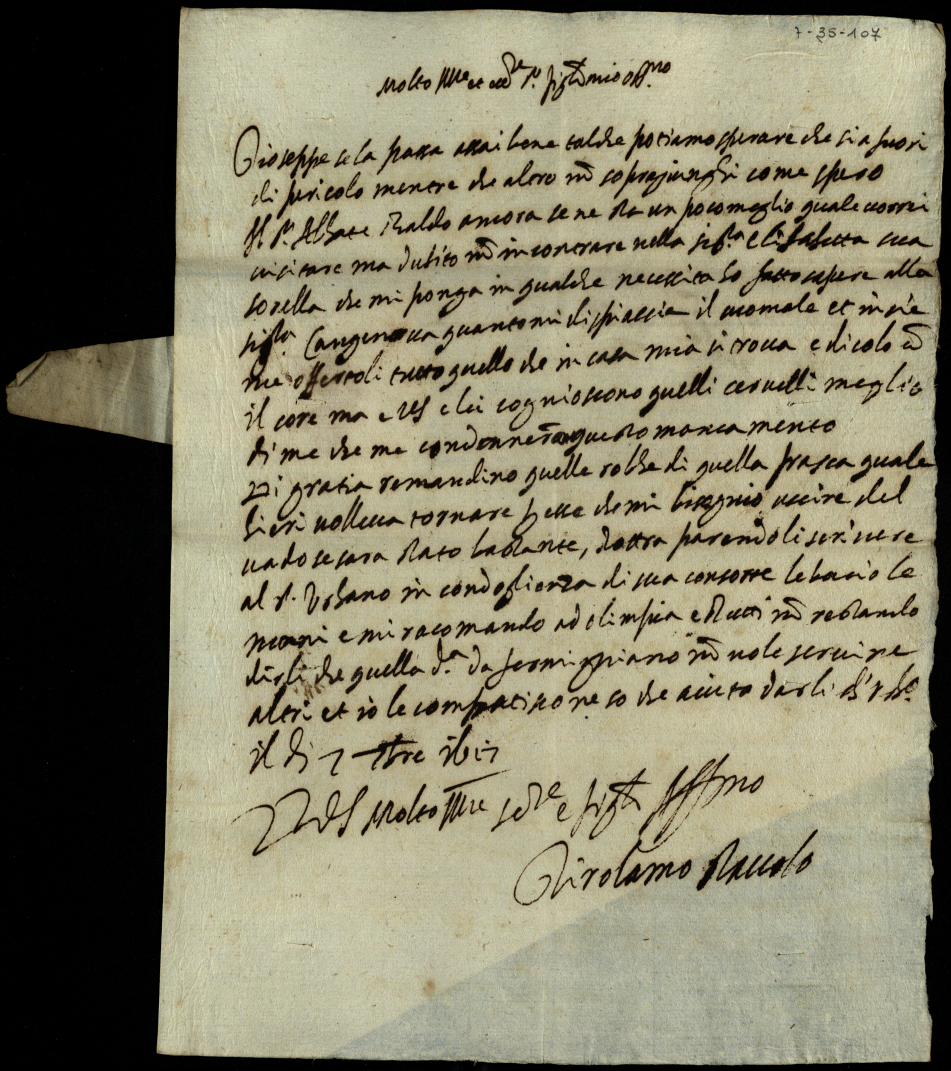 7-35-107
Molto Ill.re et ecc.te S.r sig.r mio oss.mo
Gioseppe se la passa assai bene talche potiamo sperare che sia fuori
di pericolo mentre che altro nō sopragiunghi come spero
Il S.r Abbate Baldo ancora se ne sta un poco meglio quale vorrei
visitare ma dubito nō incontrare nella sig.ra Elisabetta sua
sorella che mi ponga in qualche necessita ho fatto sapere alla
sig.ra quanto mi dispiaccia il suo male et insie
me offertoli tutto quello che in casa mia si trova e dicolo cō
il core ma e VS e lei cognioscono quelli cervelli meglio
di me che me condonnerāno questo mancamento
Di gratia remandino quelle robbe di quella frasca quale
hieri volleva tornare che mi bisognio uscire del
vado se sara stato bastante, parendoli scrivere
al S.r Urbano in condoglienza di sua consorte le bacio le
mani e mi racomando ad Olimpia e tutti nō restando
dirli che quella d.a da fermignano nō vole servire
altri et io le compatisco ne so che aiuto darli
il di 7 7bre 1617
D VS Molto Ill.re
Girolamo Staccolo